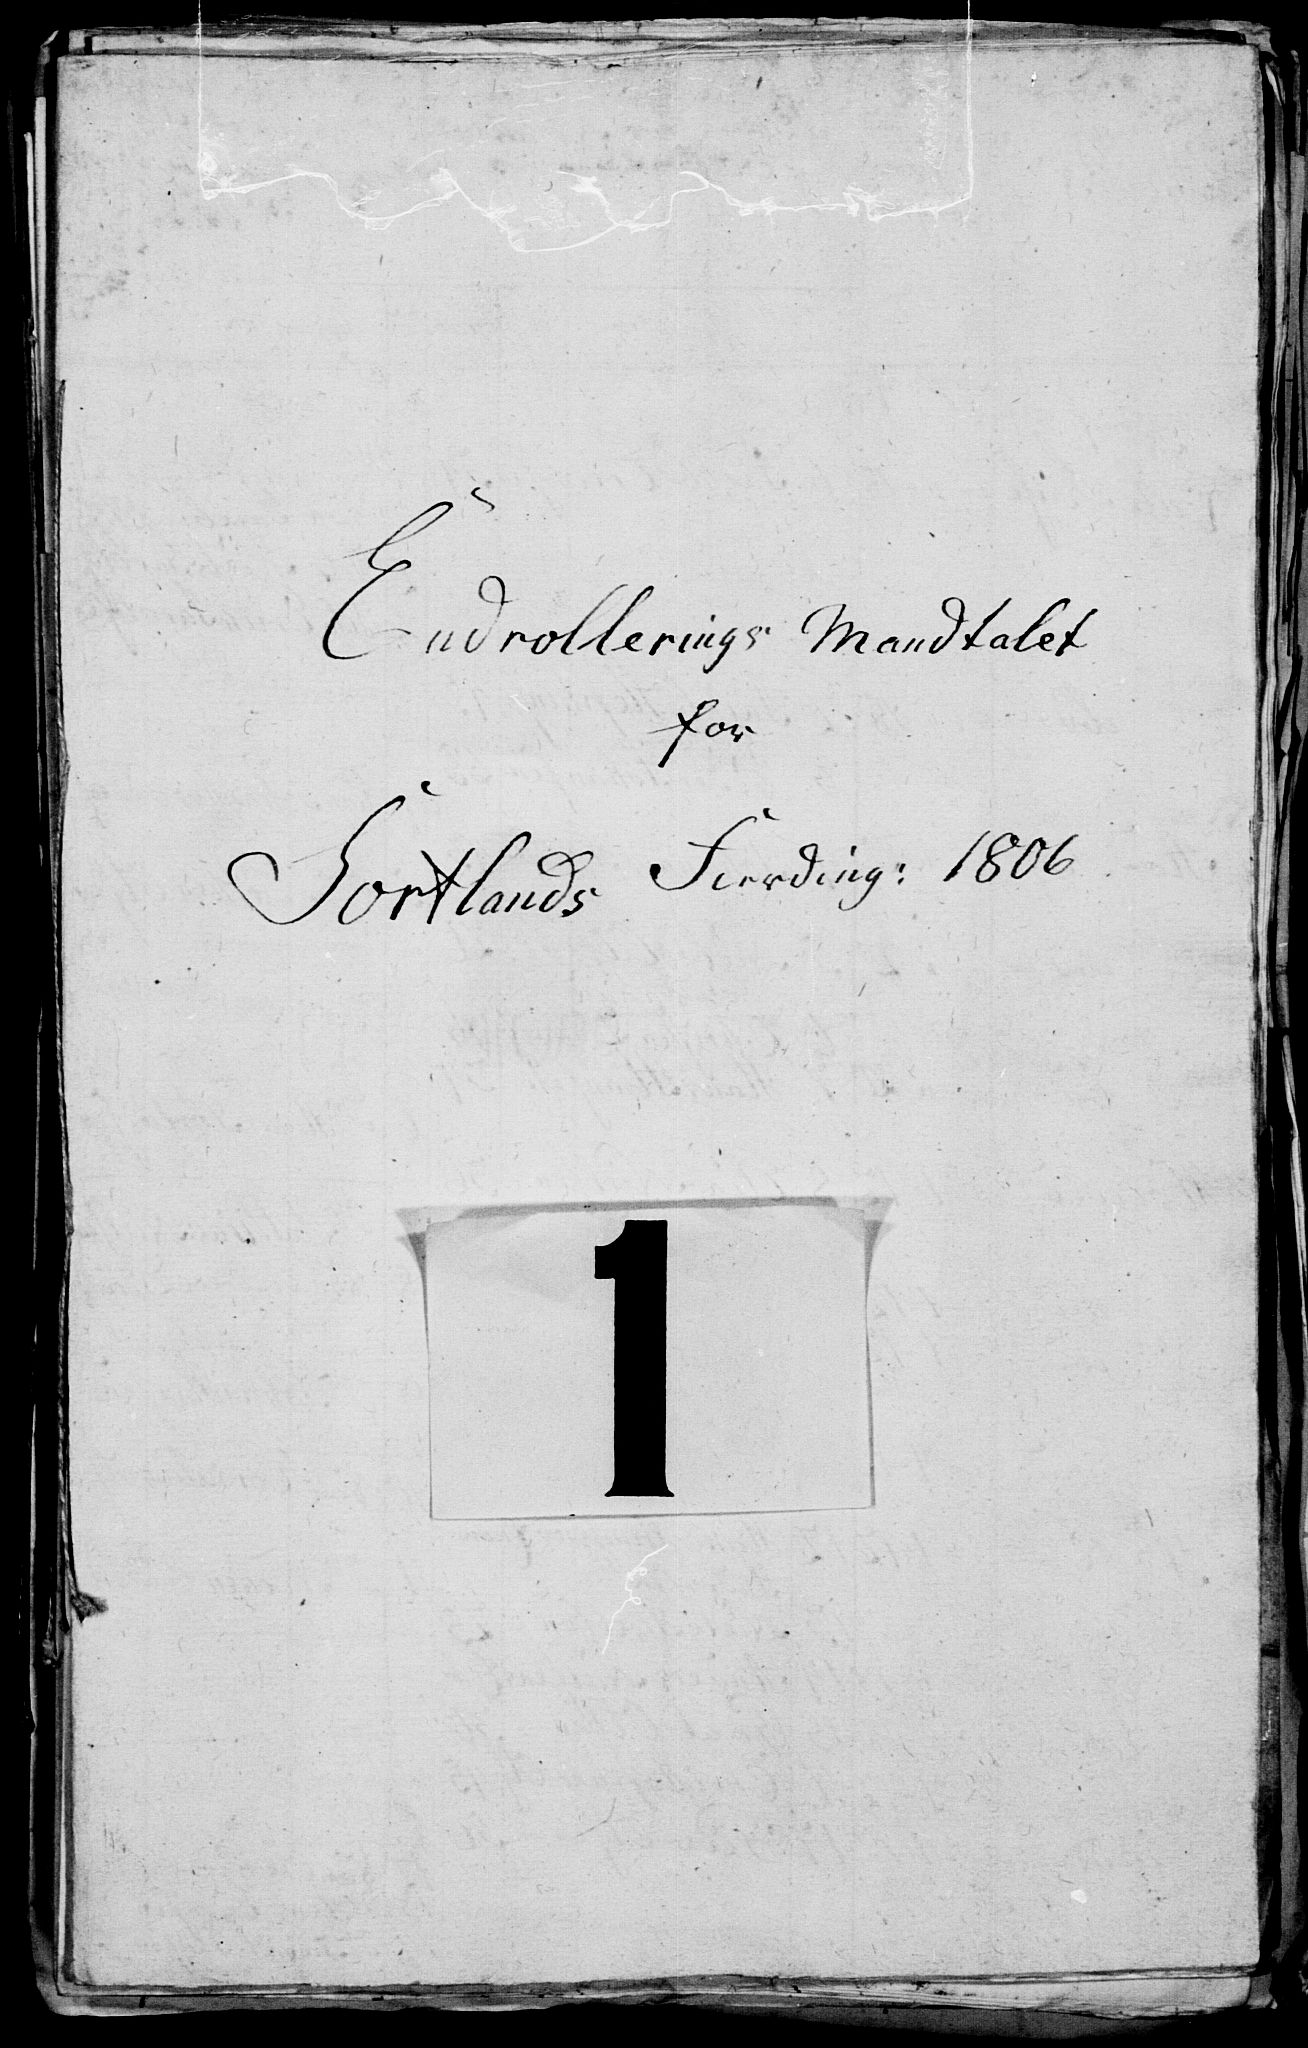 Endrollerings Mandtalet
for
Sortlands Fierding: 1806
1